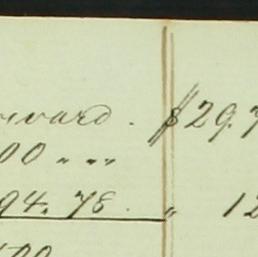 rward. $29.7
00 " "
94.78. " 12